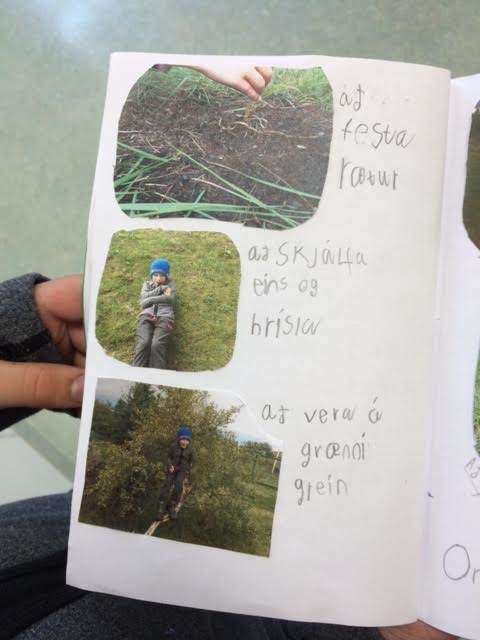 at
festa
rætur
at skjálfa
eins og
hrísla
at vera á
grænni
grein
Or